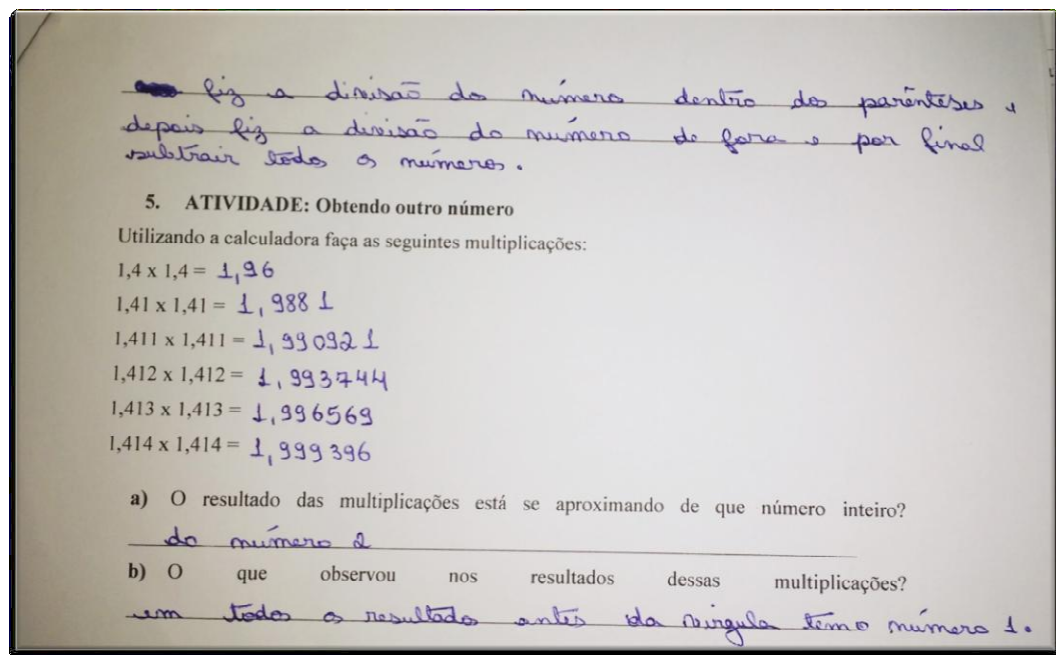 fiz a divisão do número dentro dos parênteses e
depois fiz a divisão do número de fora e por final
subtrair todos os números.
5. ATIVIDADE: Obtendo outro número
Utilizando a calculadora faça as seguintes multiplicações:
1,4 x 1,4 = 1,96
1,41 x 1,41 = 1,9881
1,411 x 1,411 = 1,990921
1,412 x 1,412 = 1,993744
1,413 x 1,413 = 1,996569
1,414 x 1,414 = 1,999396
a) O resultado das multiplicações está se aproximando de que número inteiro?
do número 2
b) O que observou nos resultados dessas multiplicações?
em todos os resultado antes da vírgula tem o número 1.